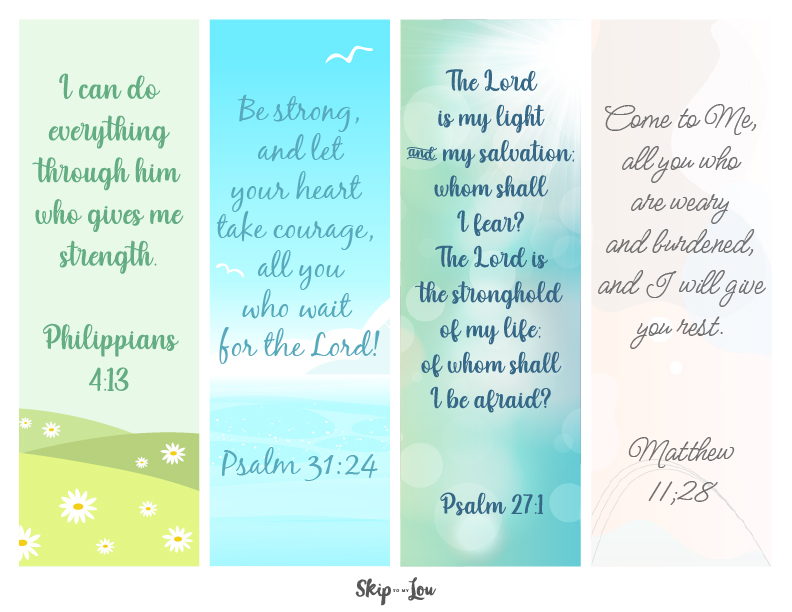 I can do
everything
through him
who gives me
strength.
Philippians
4:13
Be strong,
and let
your heart
take courage,
all you
who wait
for the Lord!
Psalm 31:24
The Lord
is my light
and my salvation;
whom shall
I fear?
The Lord is
the stronghold
of my life;
of whom shall
I be afraid?
Psalm 27:1
Come to Me,
all you who
are weary
and burdened,
and I will give
you rest.
Matthew
11;28
Skip TO MY Lou